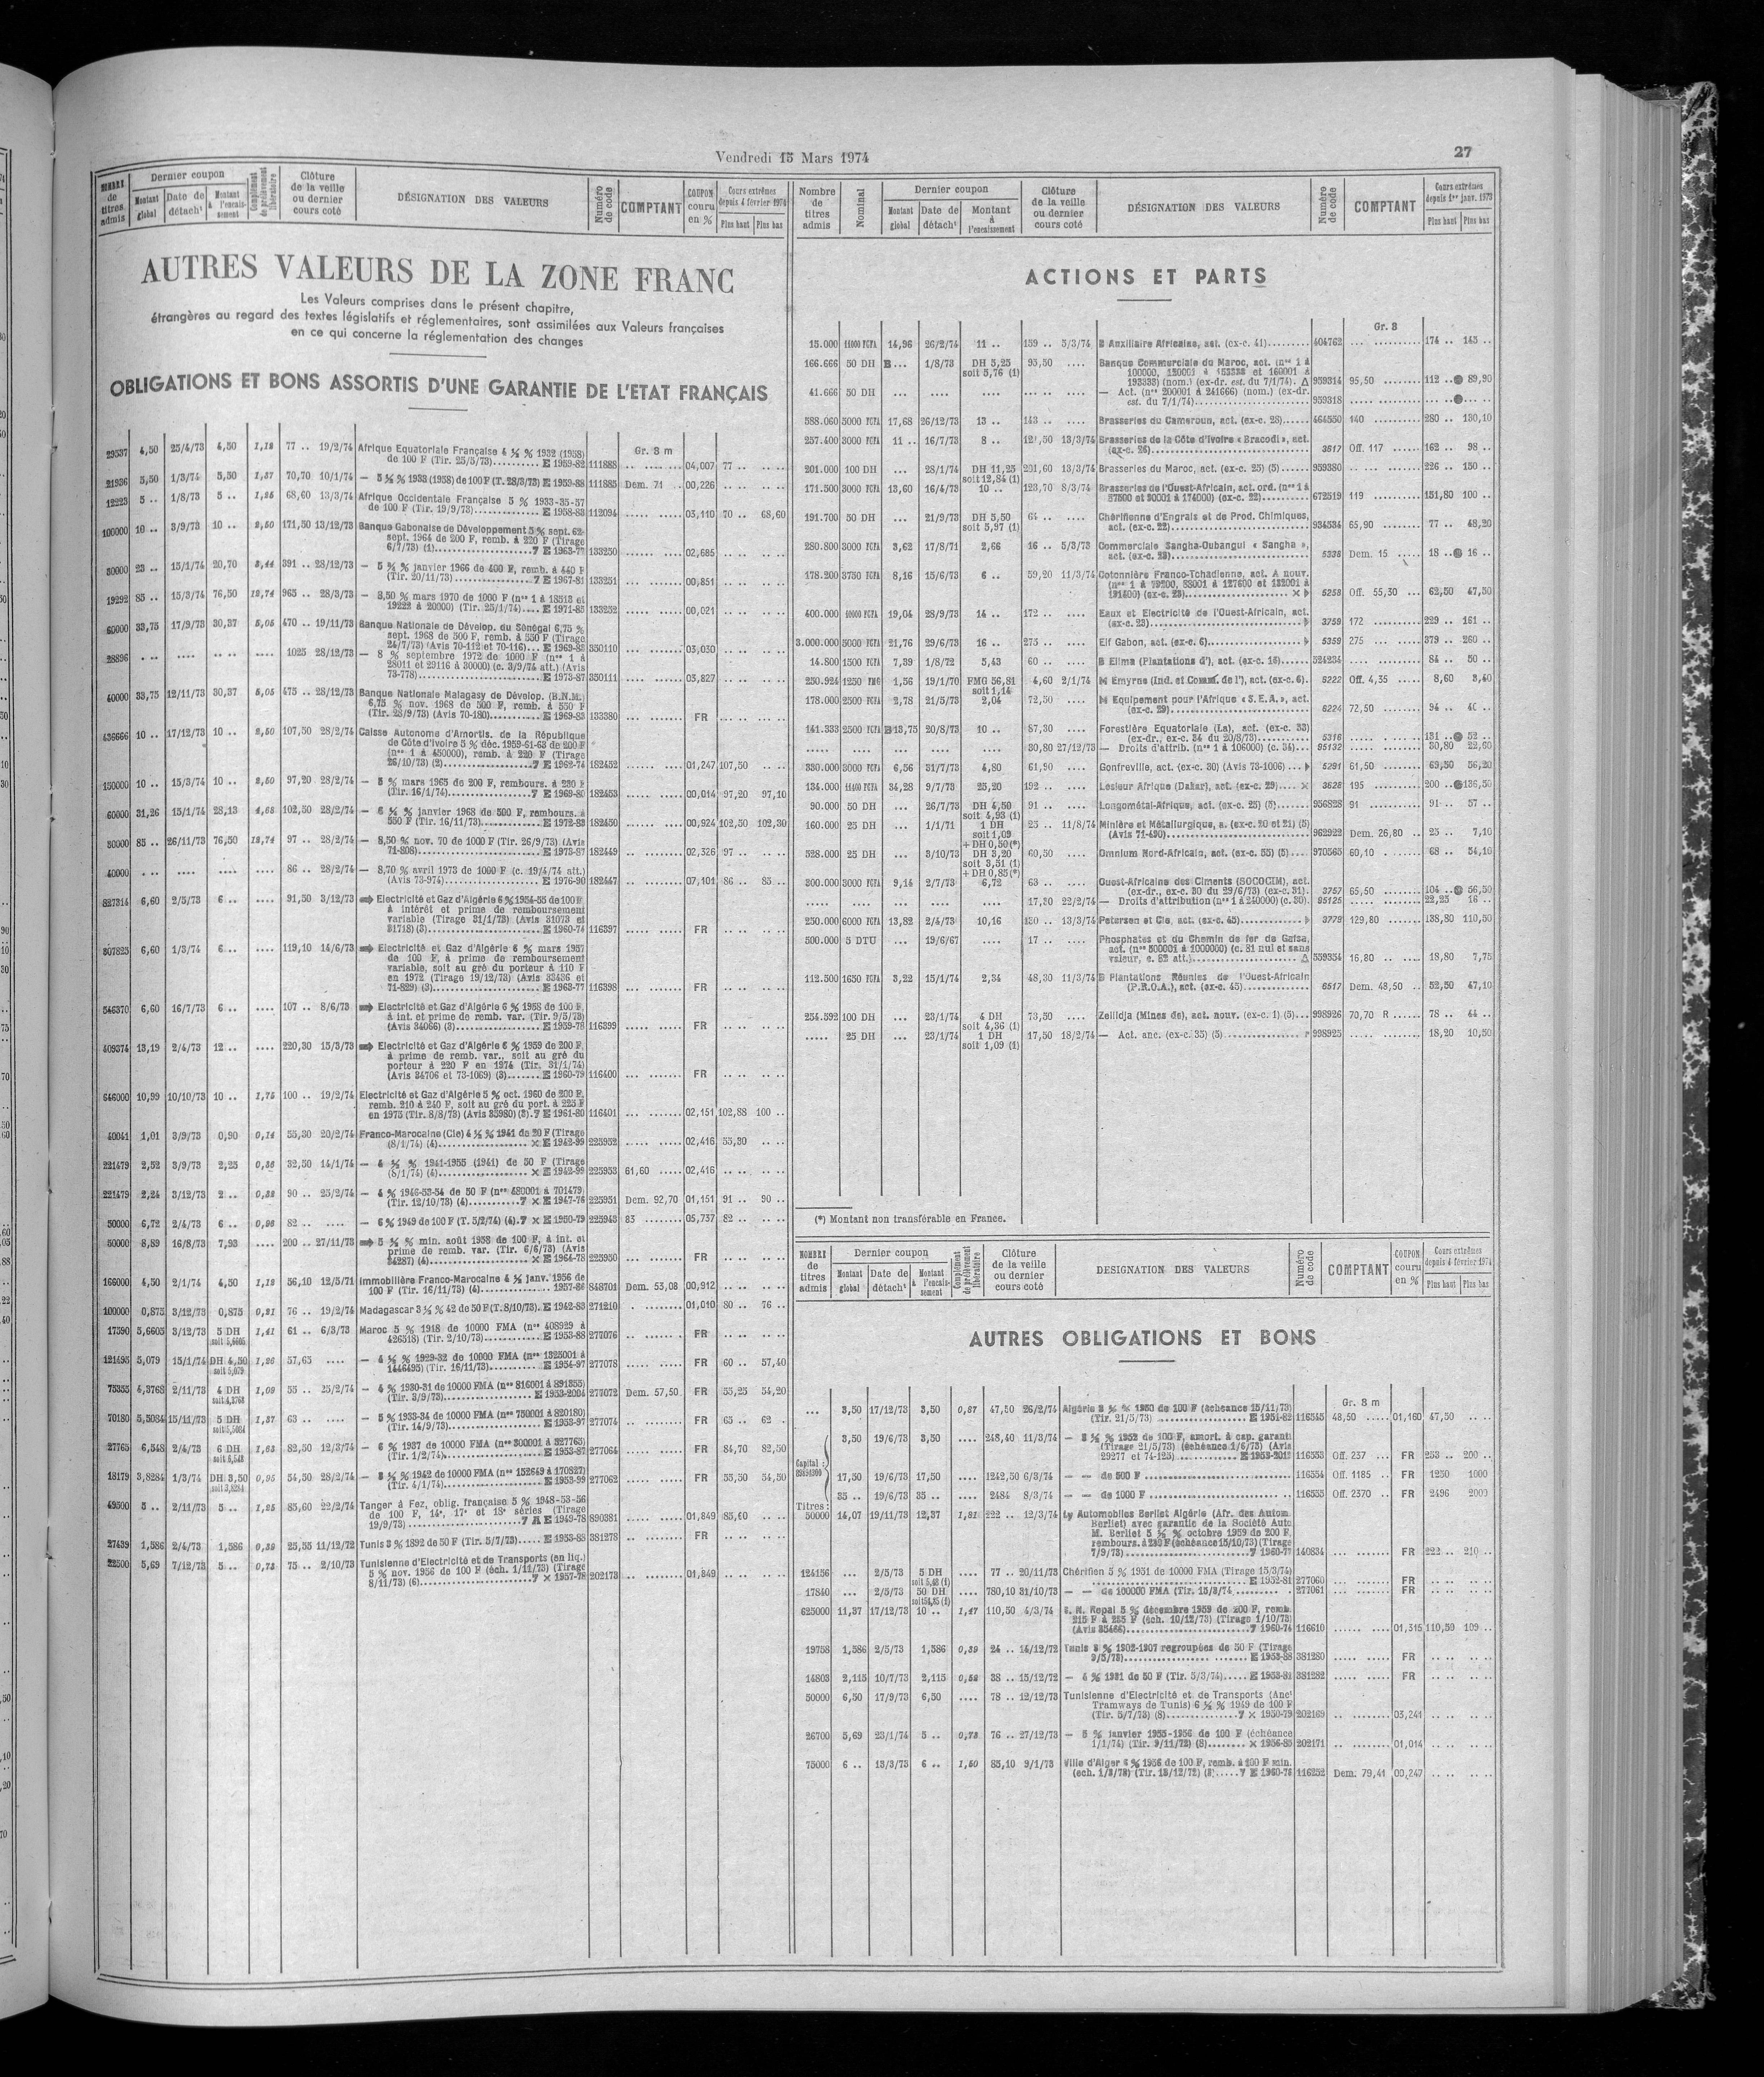 Vendredi 15 Mars 1974
27
NOMBRE de titres admis | Dernier coupon | Montant global | Date de détach¹ | Montant à l'encaissement | Complément de prélèvement libératoire | Clôture de la veille ou dernier cours coté | DÉSIGNATION DES VALEURS | Numéro de code | COMPTANT | COUPON couru en % | Cours extrêmes depuis 4 février 1974 | Plus haut | Plus bas
AUTRES VALEURS DE LA ZONE FRANC
Les Valeurs comprises dans le présent chapitre,
étrangères au regard des textes législatifs et réglementaires, sont assimilées aux Valeurs françaises
en ce qui concerne la réglementation des changes
OBLIGATIONS ET BONS ASSORTIS D'UNE GARANTIE DE L'ETAT FRANÇAIS
Gr. 8 m
29537 4,50 25/4/73 4,50 1,18 77 .. 19/2/74 Afrique Equatoriale Française 4 ½ % 1932 (1958)
de 100 F (Tir. 25/5/73) E 1959-82 111888 04,007 77 ..
21936 5,50 1/3/74 5,50 1,37 70,70 10/1/74 — 5 ½ % 1933 (1958) de 100 F (T. 28/3/73) E 1959-88 111885 Dem. 71 .. 00,226
12223 5 .. 1/8/73 5 .. 1,25 68,60 13/3/74 Afrique Occidentale Française 5 % 1933-35-37
de 100 F (Tir. 19/9/73) E 1958-83 112094 03,110 70 .. 68,60
100000 10 .. 3/9/73 10 .. 2,50 171,50 13/12/73 Banque Gabonaise de Développement 5 % sept. 62-
sept. 1964 de 200 F, remb. à 220 F (Tirage
6/7/73) (1) 7 E 1963-77 133250 02,685
30000 23 .. 15/1/74 20,70 3,44 391 .. 28/12/73 — 5 ¾ % janvier 1966 de 400 F, remb. à 440 F
(Tir. 20/11/73) 7 E 1967-81 133251 00,851
19292 85 .. 15/3/74 76,50 12,74 965 .. 28/3/73 — 8,50 % mars 1970 de 1000 F (nos 1 à 18513 et
19222 à 20000) (Tir. 25/1/74) E 1971-85 133252 00,021
60000 33,75 17/9/73 30,37 5,05 470 .. 19/11/73 Banque Nationale de Dévelop. du Sénégal 6,75 %
sept. 1968 de 500 F, remb. à 550 F (Tirage
24/7/73) (Avis 70-112 et 70-116) E 1969-83 350110 03,030
28896 1025 28/12/73 — 8 % septembre 1972 de 1000 F (nos 1 à
28011 et 29116 à 30000) (c. 3/9/74 att.) (Avis
73-778) E 1973-87 350111 03,827
40000 33,75 12/11/73 30,37 5,05 475 .. 28/12/73 Banque Nationale Malagasy de Dévelop. (B.N.M.)
6,75 % nov. 1968 de 500 F, remb. à 550 F
(Tir. 28/9/73) (Avis 70-180) E 1969-83 133380 FR
436666 10 .. 17/12/73 10 .. 2,50 107,50 28/2/74 Caisse Autonome d'Amortis. de la République
de Côte d'Ivoire 5 % déc. 1959-61-63 de 200 F
(nos 1 à 450000), remb. à 220 F (Tirage
26/10/73) (2) 7 E 1962-74 182452 01,247 107,50
150000 10 .. 15/3/74 10 .. 2,50 97,20 28/2/74 — 5 % mars 1965 de 200 F, rembours. à 230 F
(Tir. 16/1/74) 7 E 1969-80 182453 00,014 97,20 97,10
60000 31,26 15/1/74 28,13 4,68 102,50 28/2/74 — 6 ¼ % janvier 1968 de 500 F, rembours. à
550 F (Tir. 16/11/73) E 1972-83 182450 00,924 102,50 102,30
30000 85 .. 26/11/73 76,50 12,74 97 .. 28/2/74 — 8,50 % nov. 70 de 1000 F (Tir. 26/9/73) (Avis
71-808) E 1973-87 182449 02,326 97 ..
40000 86 .. 28/2/74 — 8,70 % avril 1973 de 1000 F (c. 19/4/74 att.)
(Avis 73-974) E 1976-90 182447 07,101 86 .. 85 ..
827314 6,60 2/5/73 6 .. 91,50 3/12/73 Electricité et Gaz d'Algérie 6 % 1954-55 de 100 F
à intérêt et prime de remboursement
variable (Tirage 31/1/73) (Avis 31073 et
31718) (3) E 1960-74 116397 FR
307825 6,60 1/3/74 6 .. 119,10 14/6/73 Electricité et Gaz d'Algérie 6 % mars 1957
de 100 F, à prime de remboursement
variable, soit au gré du porteur à 110 F
en 1972 (Tirage 19/12/73) (Avis 33436 et
71-829) (3) E 1963-77 116398 FR
546370 6,60 16/7/73 6 .. 107 .. 8/6/73 Electricité et Gaz d'Algérie 6 % 1958 de 100 F,
à int. et prime de remb. var. (Tir. 9/5/73)
(Avis 34066) (3) E 1959-78 116399 FR
409374 13,19 2/4/73 12 .. 220,30 15/3/73 Electricité et Gaz d'Algérie 6 % 1959 de 200 F,
à prime de remb. var., soit au gré du
porteur à 220 F en 1974 (Tir. 31/1/74)
(Avis 34706 et 73-1069) (3) E 1960-79 116400 FR
646000 10,99 10/10/73 10 .. 1,75 100 .. 19/2/74 Electricité et Gaz d'Algérie 5 % oct. 1960 de 200 F,
remb. 210 à 240 F, soit au gré du port. à 225 F
en 1975 (Tir. 8/8/73) (Avis 35980) (3). 7 E 1961-80 116401 02,151 102,88 100 ..
40041 1,01 3/9/73 0,90 0,14 55,30 20/2/74 Franco-Marocaine (Cie) 4 ½ % 1941 de 20 F (Tirage
(8/1/74) (4) × E 1942-99 225952 02,416 55,30
221479 2,52 3/9/73 2,25 0,36 32,50 14/1/74 — 4 ½ % 1941-1955 (1941) de 50 F (Tirage
(8/1/74) (4) × E 1942-99 225953 61,60 02,416
221479 2,24 3/12/73 2 .. 0,32 90 .. 25/2/74 — 4 % 1946-53-54 de 50 F (nos 480001 à 701479)
(Tir. 12/10/73) (4) 7 × E 1947-76 225951 Dem. 92,70 01,151 91 .. 90 ..
50000 6,72 2/4/73 6 .. 0,96 82 .. — 6 % 1949 de 100 F (T. 5/2/74) (4). 7 × E 1950-79 225948 83 05,737 82 ..
50000 8,89 16/8/73 7,93 200 .. 27/11/73 5 ½ % min. août 1958 de 100 F, à int. et
prime de remb. var. (Tir. 6/6/73) (Avis
34287) (4) × E 1964-78 225950 FR
166000 4,50 2/1/74 4,50 1,19 56,10 12/5/71 Immobilière Franco-Marocaine 4 ½ janv. 1956 de
100 F (Tir. 16/11/73) (4) 1957-86 848701 Dem. 53,08 00,912
100000 0,875 3/12/73 0,875 0,21 76 .. 19/2/74 Madagascar 3 ½ % 42 de 50 F (T. 8/10/73). E 1942-83 271210 01,010 80 .. 76 ..
17590 5,6605 3/12/73 5 DH 1,41 61 .. 6/3/73 Maroc 5 % 1918 de 10000 FMA (nos 408929 à
soit 5,6605 426518) (Tir. 2/10/73) E 1953-88 277076 FR
121495 5,079 15/1/74 DH 4,50 1,26 57,65 — 4 ½ % 1929-32 de 10000 FMA (nos 1325001 à
soit 5,079 1446495) (Tir. 16/11/73) E 1954-97 277078 FR 60 .. 57,40
75355 4,3768 2/11/73 4 DH 1,09 55 .. 25/2/74 — 4 % 1930-31 de 10000 FMA (nos 816001 à 891355)
soit 4,3768 (Tir. 3/9/73) E 1953-2004 277072 Dem. 57,50 FR 55,25 54,20
70180 5,5084 15/11/73 5 DH 1,37 63 .. — 5 % 1933-34 de 10000 FMA (nos 750001 à 820180)
soit 5,5084 (Tir. 14/9/73) E 1953-97 277074 FR 65 .. 62 ..
27765 6,548 2/4/73 6 DH 1,63 82,50 12/3/74 — 6 % 1937 de 10000 FMA (nos 300001 à 327765)
soit 6,548 (Tir. 1/2/74) E 1953-87 277064 FR 84,70 82,50
18179 3,8284 1/3/74 DH 3,50 0,95 54,50 28/2/74 — 3 ½ % 1942 de 10000 FMA (nos 152649 à 170827)
soit 3,8284 (Tir. 4/1/74) E 1953-99 277062 FR 55,50 54,50
49500 5 .. 2/11/73 5 .. 1,25 85,60 22/2/74 Tanger à Fez, oblig. française 5 % 1948-53-56
de 100 F, 14e, 17e et 18e séries (Tirage
19/9/73) 7 A E 1949-78 890381 01,849 85,60
27439 1,586 2/4/73 1,586 0,39 25,55 11/12/72 Tunis 3 % 1892 de 50 F (Tir. 5/7/73) E 1953-88 381278 FR
22500 5,69 7/12/73 5 .. 0,73 75 .. 2/10/73 Tunisienne d'Electricité et de Transports (en liq.)
5 % nov. 1956 de 100 F (éch. 1/11/73) (Tirage
8/11/73) (6) 7 × 1957-78 202173 01,849
Nombre de titres admis | Nominal | Dernier coupon | Montant global | Date de détach¹ | Montant à l'encaissement | Clôture de la veille ou dernier cours coté | DÉSIGNATION DES VALEURS | Numéro de code | COMPTANT | Cours extrêmes depuis 1er janv. 1973 | Plus haut | Plus bas
ACTIONS ET PARTS
Gr. 8
15.000 14,96 26/2/74 11 .. 159 .. 5/3/74 B Auxiliaire Africaine, act. (ex-c. 41) 404762 174 .. 145 ..
166.666 50 DH B... 1/8/73 DH 5,25 95,50 Banque Commerciale du Maroc, act. (nos 1 à
soit 5,76 (1) 100000, 120001 à 153333 et 160001 à
193333) (nom.) (ex-dr. est. du 7/1/74). Δ 959314 95,50 112 .. 89,90
41.666 50 DH — Act. (nos 200001 à 241666) (nom.) (ex-dr.
est. du 7/1/74) 959318
588.060 5000 FCFA 17,68 26/12/73 13 .. 143 .. Brasseries du Cameroun, act. (ex-c. 28) 464550 140 280 .. 130,10
257.400 3000 FCFA 11 .. 16/7/73 8 .. 121,50 13/3/74 Brasseries de la Côte d'Ivoire « Bracodi », act.
(ex-c. 26) 3617 Off. 117 162 .. 98 ..
201.000 100 DH 28/1/74 DH 11,25 201,60 13/3/74 Brasseries du Maroc, act. (ex-c. 25) (5) 959380 226 .. 150 ..
soit 12,84 (1)
171.500 3000 FCFA 13,60 16/4/73 10 .. 123,70 8/3/74 Brasseries de l'Ouest-Africain, act. ord. (nos 1 à
57500 et 30001 à 174000) (ex-c. 22) 672519 119 151,80 100 ..
191.700 50 DH 21/9/73 DH 5,50 64 .. Chérifienne d'Engrais et de Prod. Chimiques,
soit 5,97 (1) act. (ex-c. 22) 934534 65,90 77 .. 48,20
280.800 3000 FCFA 3,62 17/8/71 2,66 16 .. 5/3/73 Commerciale Sangha-Oubangui « Sangha »,
act. (ex-c. 28) 5338 Dem. 15 18 .. 16 ..
178.200 3750 FCFA 8,16 15/6/73 6 .. 59,20 11/3/74 Cotonnière Franco-Tchadienne, act. A nouv.
(nos 1 à 79200, 88001 à 127600 et 132001 à
191400) (ex-c. 23) × 5258 Off. 55,30 62,50 47,50
400.000 19,04 28/9/73 14 .. 172 .. Eaux et Electricité de l'Ouest-Africain, act.
(ex-c. 23) 3759 172 229 .. 161 ..
3.000.000 5000 FCFA 21,76 29/6/73 16 .. 275 .. Elf Gabon, act. (ex-c. 6) 5359 275 379 .. 260 ..
14.800 1500 FCFA 7,39 1/8/72 5,43 60 .. B Elima (Plantations d'), act. (ex-c. 16) 524234 84 .. 50 ..
250.924 1250 FMG 1,56 19/1/70 FMG 56,81 4,60 2/1/74 Emyrne (Ind. et Comm. de l'), act. (ex-c. 6) 5222 Off. 4,35 8,60 3,40
soit 1,14
178.000 2500 FCFA 2,78 21/5/73 2,04 72,50 Equipement pour l'Afrique « S.E.A. », act.
(ex-c. 29) 6224 72,50 94 .. 40 ..
141.333 2500 FCFA 13,75 20/8/73 10 .. 87,30 Forestière Equatoriale (La), act. (ex-c. 33)
(ex-dr., ex-c. 34 du 20/8/73) 5316 131 .. 52 ..
30,80 27/12/73 — Droits d'attrib. (nos 1 à 106000) (c. 34) 95132 30,80 22,60
330.000 3000 FCFA 6,56 31/7/73 4,80 61,90 Gonfreville, act. (ex-c. 30) (Avis 73-1006) 5291 61,50 69,50 56,20
134.000 34,28 9/7/73 25,20 192 .. Lesieur Afrique (Dakar), act. (ex-c. 29) × 3628 195 200 .. 136,50
90.000 50 DH 26/7/73 DH 4,50 91 .. Longométal-Afrique, act. (ex-c. 25) (5) 956828 91 91 .. 57 ..
soit 4,93 (1)
160.000 25 DH 1/1/71 1 DH 25 .. 11/8/74 Minière et Métallurgique, a. (ex-c. 20 et 21) (5)
soit 1,09 (Avis 71-490) 962922 Dem. 26,80 25 .. 7,10
+ DH 0,50 (*)
528.000 25 DH 3/10/73 DH 3,20 60,50 Omnium Nord-Africain, act. (ex-c. 55) (5) 970565 60,10 68 .. 54,10
soit 3,51 (1)
+ DH 0,85 (*)
200.000 3000 FCFA 9,14 2/7/73 6,72 63 .. Ouest-Africaine des Ciments (SOCOCIM), act.
(ex-dr., ex-c. 30 du 29/6/73) (ex-c. 31) 3757 65,50 104 .. 56,50
17,30 22/2/74 — Droits d'attribution (nos 1 à 240000) (c. 30) 95125 22,25 16 ..
250.000 6000 FCFA 13,82 2/4/73 10,16 130 .. 13/3/74 Petersen et Cie, act. (ex-c. 45) 3779 129,80 138,80 110,50
500.000 5 DTU 19/6/67 17 .. Phosphates et du Chemin de fer de Gafsa,
act. (nos 500001 à 1000000) (c. 81 nul et sans
valeur, c. 82 att.) Δ 559354 16,80 18,80 7,75
112.500 1650 FCFA 3,22 15/1/74 2,34 48,30 11/3/74 B Plantations Réunies de l'Ouest-Africain
(P.R.O.A.), act. (ex-c. 45) 6517 Dem. 48,50 52,50 47,10
254.592 100 DH 23/1/74 4 DH 73,50 Zellidja (Mines de), act. nouv. (ex-c. 1) (5) 998926 70,70 R 78 .. 44 ..
soit 4,36 (1)
25 DH 23/1/74 1 DH 17,50 18/2/74 — Act. anc. (ex-c. 35) (5) 998925 18,20 10,50
soit 1,09 (1)
(*) Montant non transférable en France.
NOMBRE de titres admis | Dernier coupon | Montant global | Date de détach¹ | Montant à l'encaissement | Complément de prélèvement libératoire | Clôture de la veille ou dernier cours coté | DESIGNATION DES VALEURS | Numéro de code | COMPTANT | COUPON couru en % | Cours extrêmes depuis 4 février 1974 | Plus haut | Plus bas
AUTRES OBLIGATIONS ET BONS
Gr. 8 m
... 3,50 17/12/73 3,50 0,87 47,50 26/2/74 Algérie 3 ½ % 1950 de 100 F (échéance 15/11/73)
(Tir. 21/5/73) E 1951-82 116545 48,50 01,160 47,50
3,50 19/6/73 3,50 248,40 11/3/74 — 3 ½ % 1952 de 100 F, amort. à cap. garanti
(Tirage 21/5/73) (échéance 1/6/73) (Avis
29277 et 74-125) E 1953-2012 116553 Off. 237 FR 253 .. 200 ..
Capital :
17,50 19/6/73 17,50 1242,50 6/3/74 — — de 500 F 116554 Off. 1185 FR 1250 1000
35 .. 19/6/73 35 .. 2484 8/3/74 — — de 1000 F 116555 Off. 2370 FR 2496 2000
Titres :
50000 14,07 19/11/73 12,37 1,81 222 .. 12/3/74 Automobiles Berliet Algérie (Afr. des Autom.
Berliet) avec garantie de la Société Auto
M. Berliet 5 ½ % octobre 1959 de 200 F,
rembours. à 230 F (échéance 15/10/73) (Tirage
7/9/73) 7 1960-77 140834 FR 222 .. 210 ..
124156 ... 2/5/73 5 DH 77 .. 20/11/73 Chérifien 5 % 1951 de 10000 FMA (Tirage 15/3/74)
soit 5,48 (1) E 1952-81 277060 FR
17840 ... 2/5/73 50 DH 780,10 31/10/73 — — de 100000 FMA (Tir. 15/3/74) 277061 FR
soit 54,85 (1)
625000 11,37 17/12/73 10 .. 1,47 110,50 4/3/74 S. N. Repal 5 % décembre 1959 de 200 F, remb.
215 F à 235 F (éch. 10/12/73) (Tirage 1/10/73)
(Avis 35466) 7 1960-74 116610 01,315 110,50 109 ..
19758 1,586 2/5/73 1,586 0,39 24 .. 14/12/72 Tunis 3 % 1902-1907 regroupées de 50 F (Tirage
9/5/73) E 1953-88 381280 FR
14803 2,115 10/7/73 2,115 0,52 38 .. 15/12/72 — 4 % 1931 de 50 F (Tir. 5/3/74) E 1953-82 381282 FR
50000 6,50 17/9/73 6,50 78 .. 12/12/73 Tunisienne d'Electricité et de Transports (Anct
Tramways de Tunis) 6 ½ % 1949 de 100 F
(Tir. 5/7/73) (8) 7 × 1950-79 202169 03,241
26700 5,69 23/1/74 5 .. 0,73 76 .. 27/12/73 — 5 % janvier 1955-1956 de 100 F (échéance
1/1/74) (Tir. 9/11/72) (8) × 1956-85 202171 01,014
75000 6 .. 13/3/73 6 .. 1,50 85,10 9/1/73 Ville d'Alger 6 % 1956 de 100 F, remb. à 100 F min.
(éch. 1/3/73) (Tir. 13/12/72) (3) 7 E 1960-76 116252 Dem. 79,41 00,247